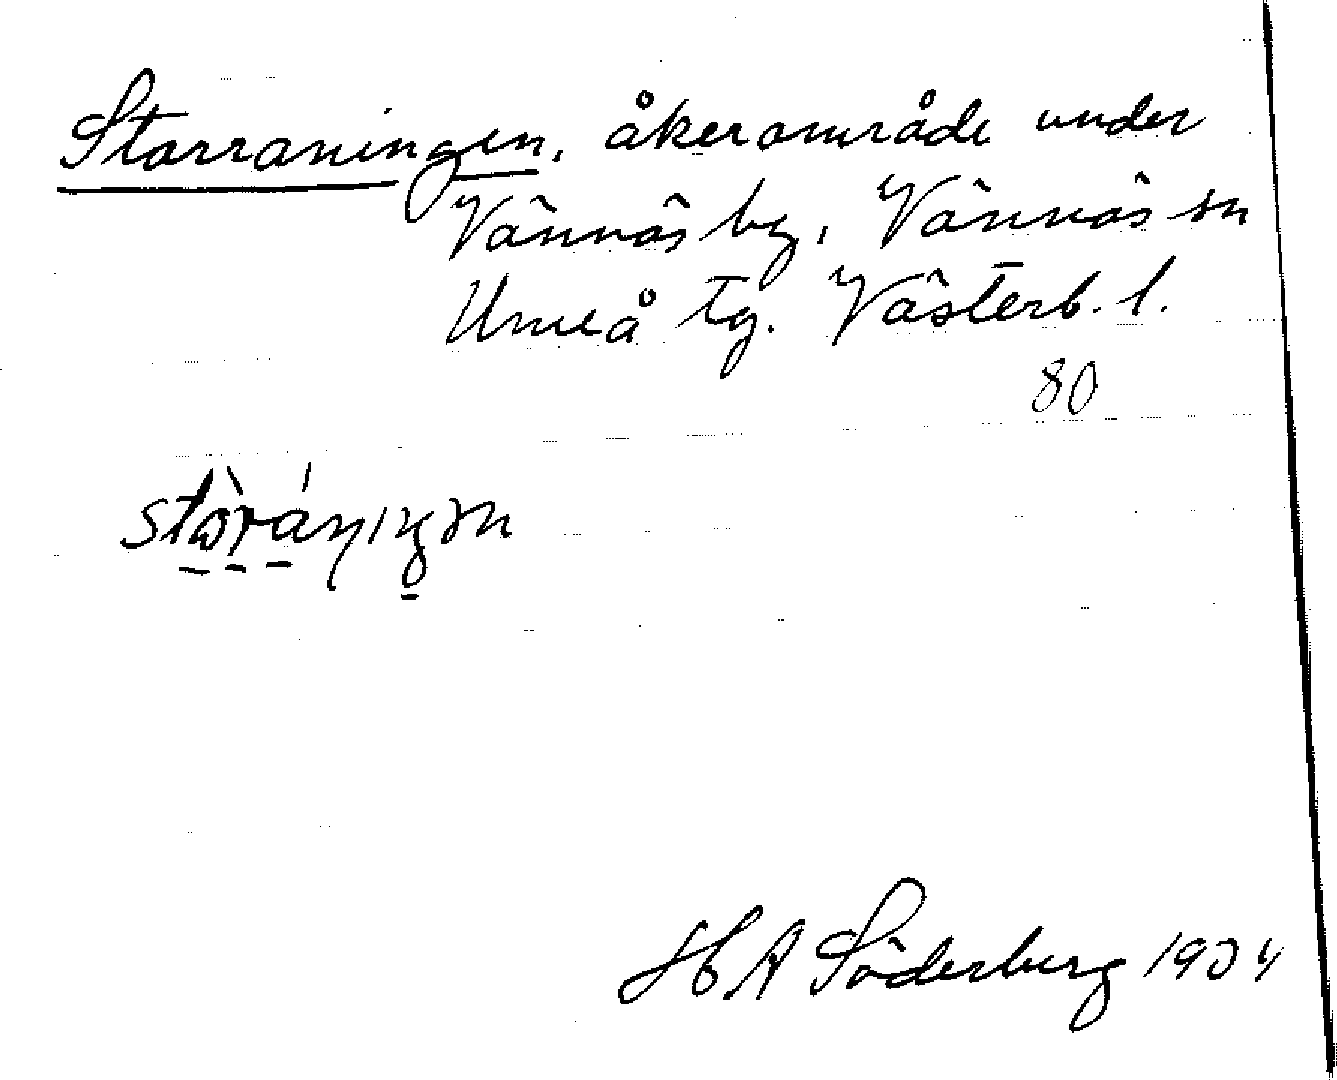 Storraningen, åkerområde under
Vännäs by, Vännäs sn
Umeå tg. Västerb. l.
80
H A Söderberg